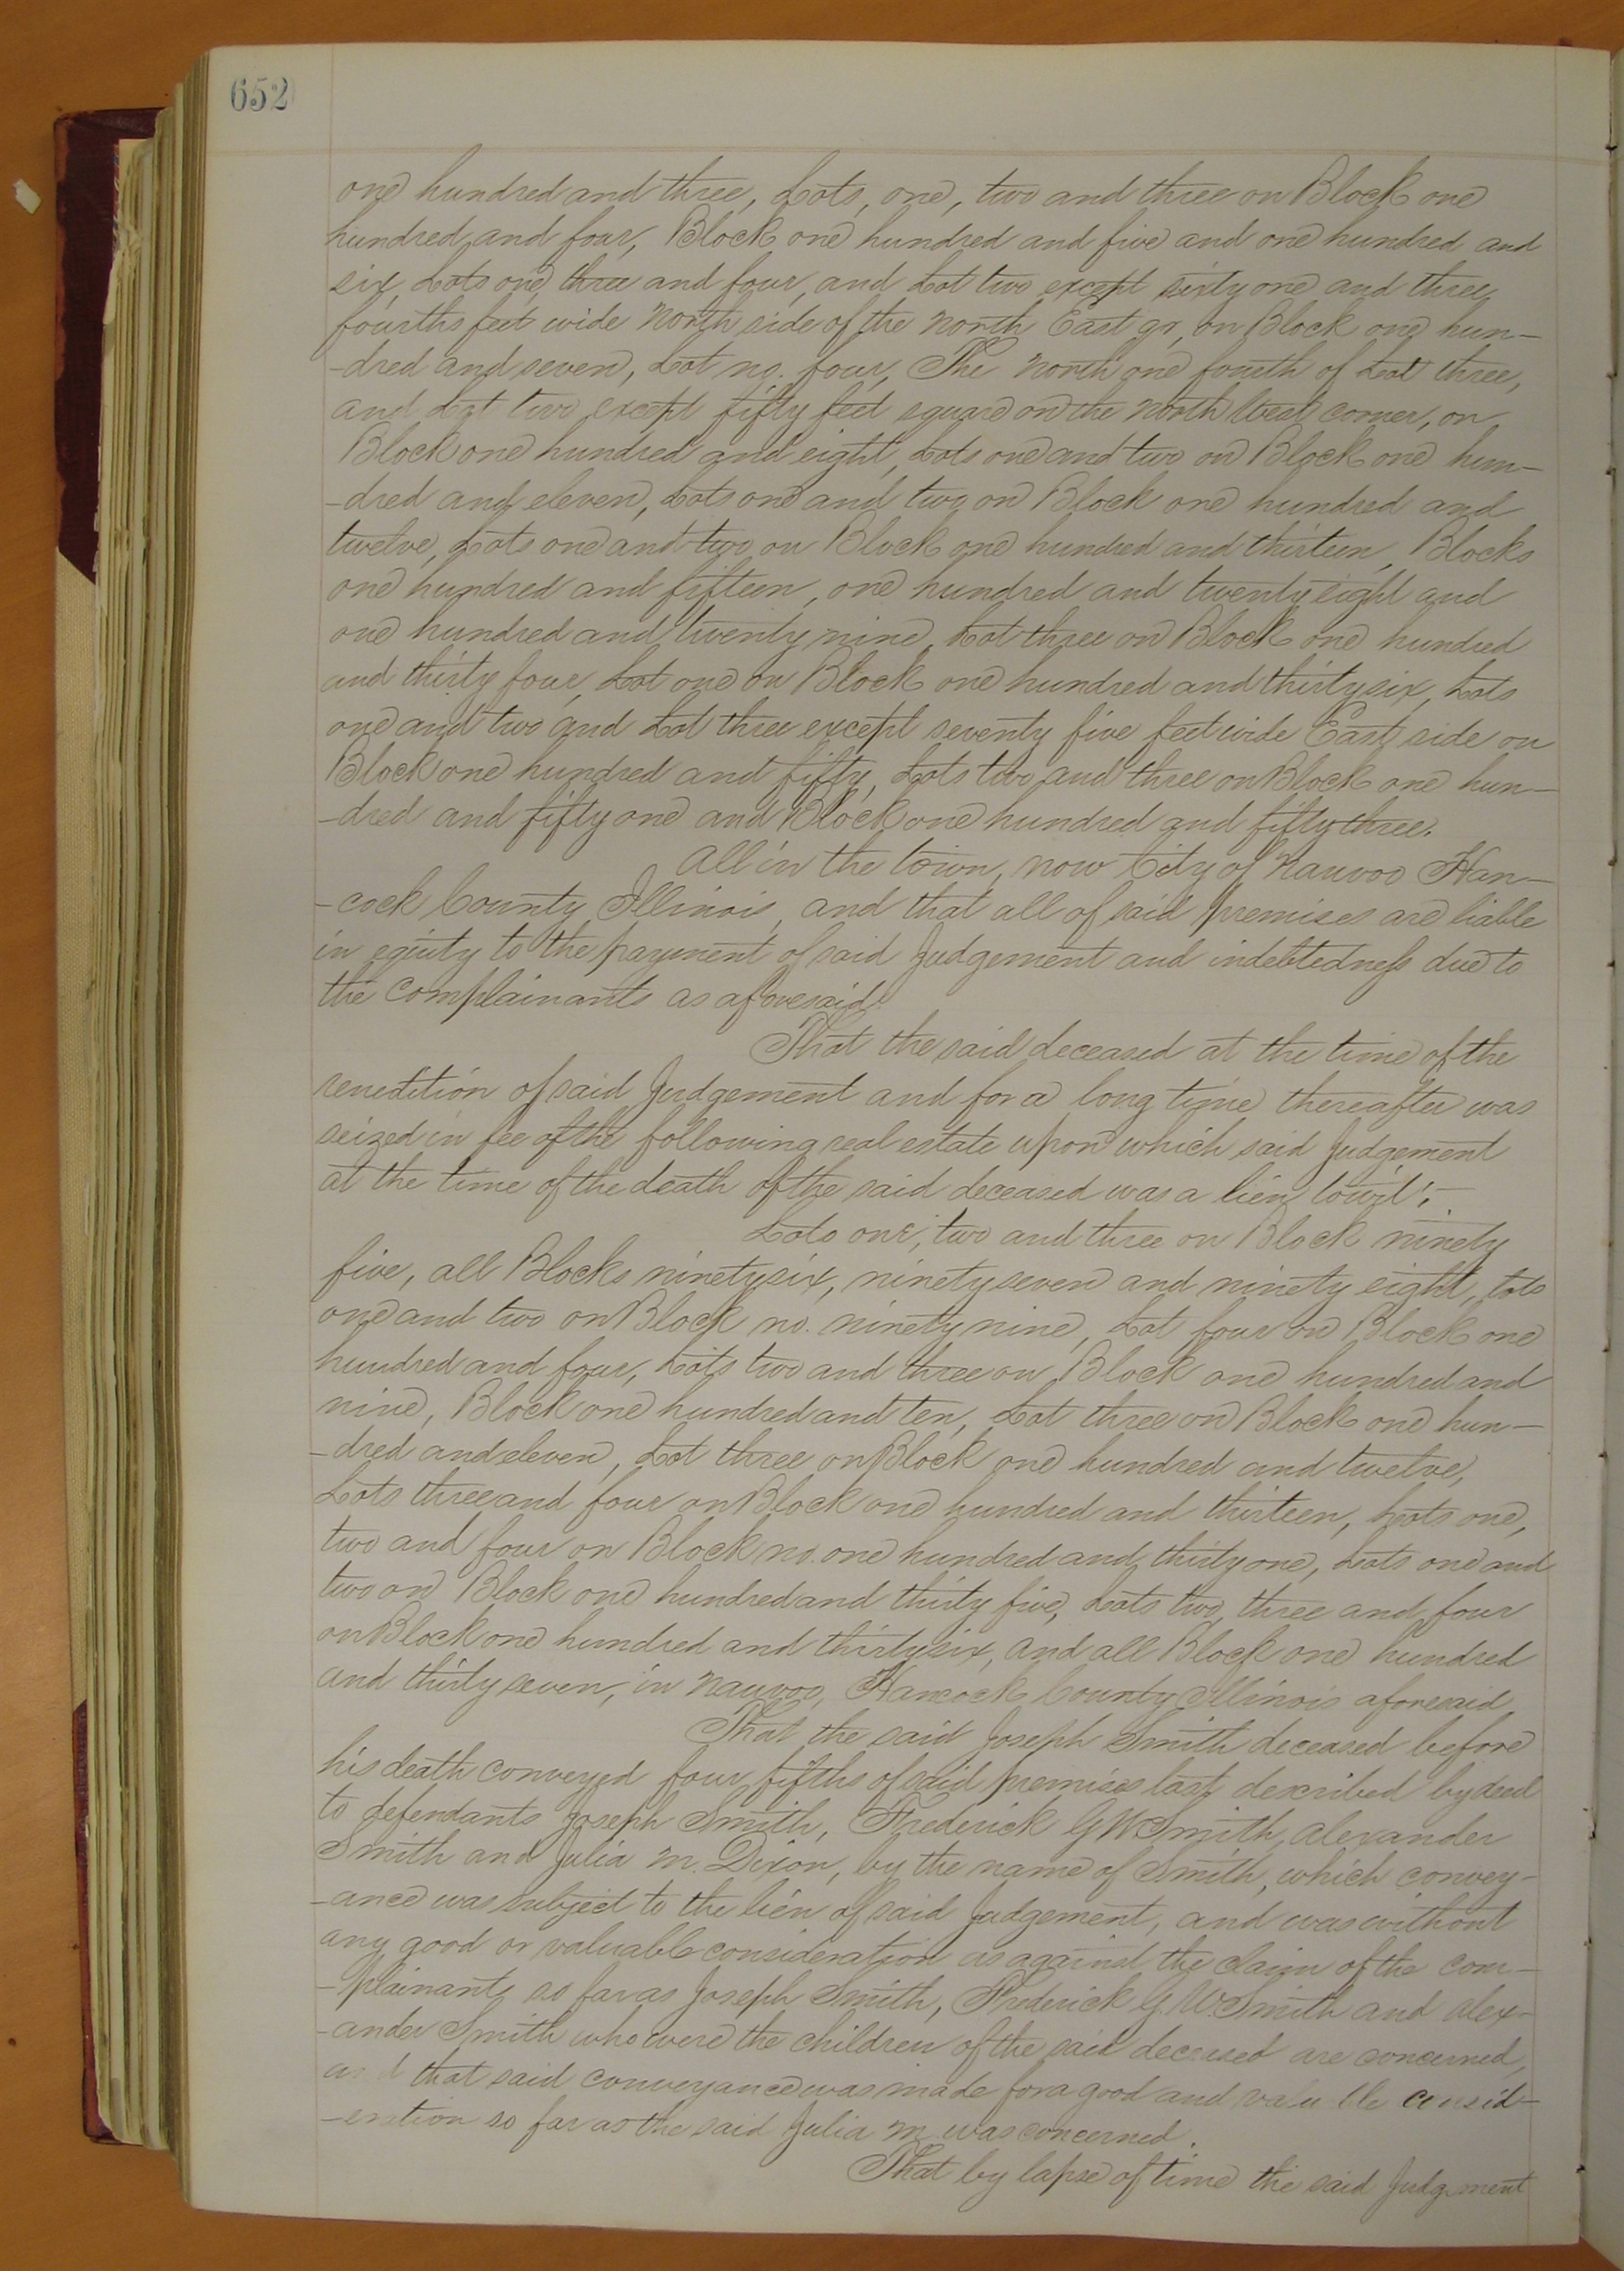 652
one hundred and three, Lots, one, two and three on Block one
hundred and four, Block one hundred and five and one hundred and
six, Lots one, three and four, and Lot two except sixty one and three
fourths feet wide North side of the North East qr, on Block one hun-
-dred and seven, Lot no. four, The North one fourth of Lot three,
and Lot two except fifty feet square on the North West corner, on
Block one hundred and eight, Lots one and two on Block one hun-
-dred and eleven, Lots one and two on Block one hundred and
twelve, Lots one and two on Block one hundred and thirteen, Blocks
one hundred and fifteen, one hundred and twenty eight and
one hundred and twenty nine, Lot three on Block one hundred
and thirty four, Lot one on Block one hundred and thirty six, Lots
one and two and Lot three except seventy five feet wide East side on
Block one hundred and fifty, Lots two and three on Block one hun-
-dred and fifty one and Block one hundred and fifty three.
All in the town, now City of Nauvoo Han-
-cock County Illinois, and that all of said premises are liable
in equity to the payment of said Judgement and indebtedness due to
the complainants as aforesaid.
That the said deceased at the time of the
renedition of said Judgement and for a long time thereafter was
seized in fee of the following real estate upon which said Judgement
at the time of the death of the said deceased was a lien towit:-
Lots one, two and three on Block ninety
five, all Blocks ninety six, ninety seven and ninety eight, Lots
one and two on Block no. ninety nine, Lot four on Block one
hundred and four, Lots two and three on Block one hundred and
nine, Block one hundred and ten, Lot three on Block one hun-
-dred and eleven, Lot three on Block one hundred and twelve,
Lots three and four on Block one hundred and thirteen, Lots one,
two and four on Block no. one hundred and thirty one, Lots one and
two on Block one hundred and thirty five, Lots two, three and four
on Block one hundred and thirty six, and all Block one hundred
and thirty seven, in Nauvoo, Hancock County Illinois aforesaid
That the said Joseph Smith deceased before
his death conveyed four fifths of said premises last described by deed
to defendants Joseph Smith, Frederick G W Smith, Alexander
Smith and Julia M. Dixon, by the name of Smith, which convey-
-ance was subject to the lien of said Judgement, and was without
any good or valuable consideration as against the claim of the com-
-plainants so far as Joseph Smith, Frederick G. W. Smith and Alex-
-ander Smith who were the children of the said deceased are concerned,
and that said conveyance was made for a good and valuable consid-
-eration so far as the said Julia M was concerned.
That by lapse of time the said Judgement